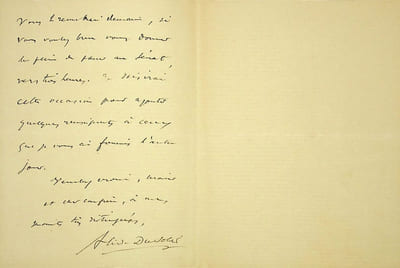 vous le remettrai demain, si
vous voulez bien vous donner
la peine de passer au Sénat,
vers trois heures. Je
cette occasion pour ajouter
quelques renseignements à ceux
que je vous ai fournis l'autre
jour.
Veuillez croire,
et cher confrère, à mes
sentiments très distingués,